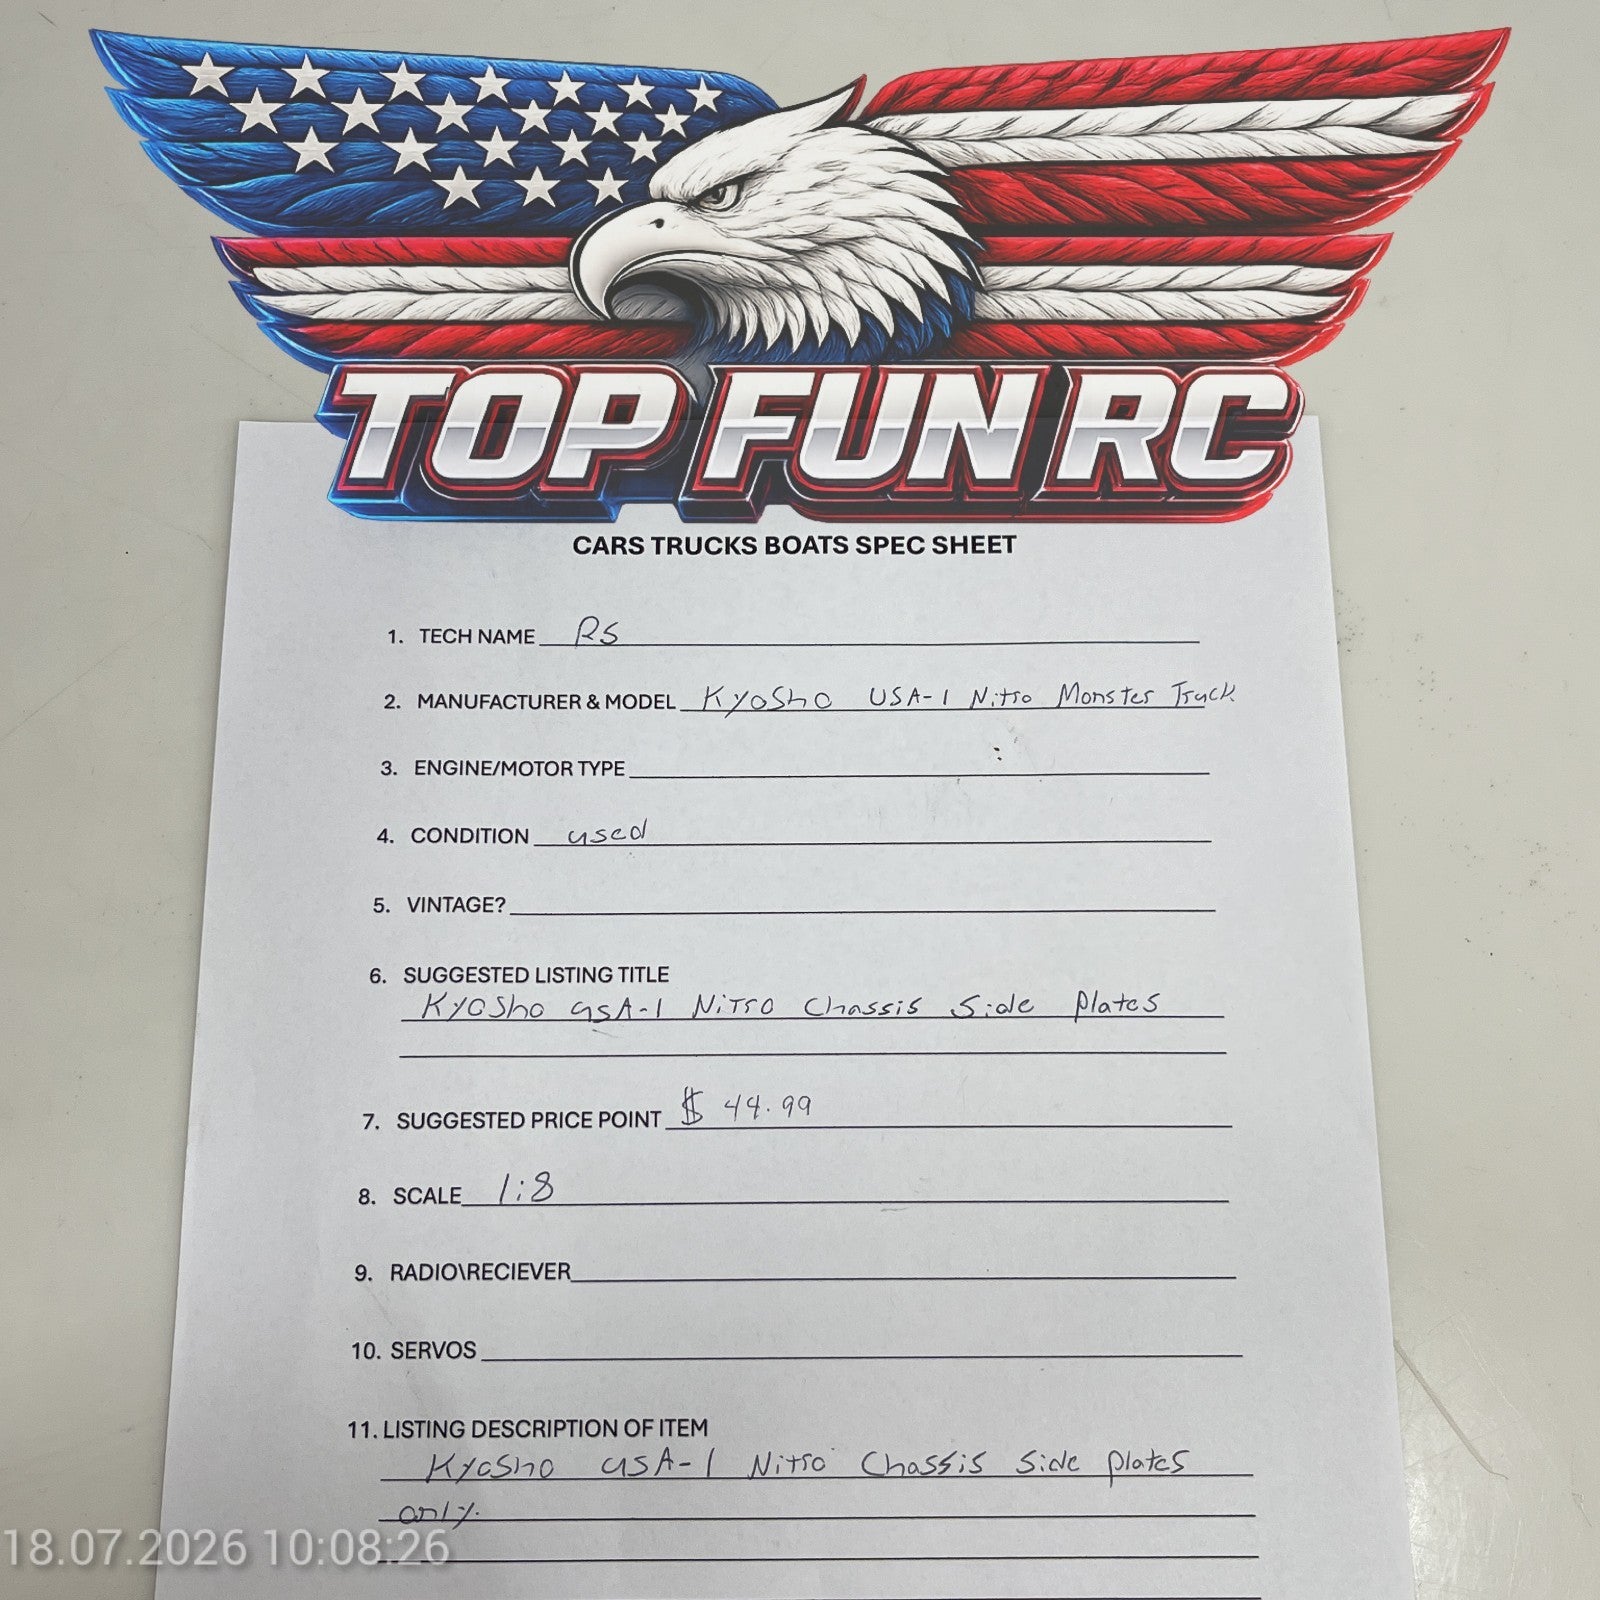 TOP FUN RC
CARS TRUCKS BOATS SPEC SHEET
1. TECH NAME RS
2. MANUFACTURER & MODEL Kyosho USA-1 Nitro Monster Truck
3. ENGINE/MOTOR TYPE
4. CONDITION used
5. VINTAGE?
6. SUGGESTED LISTING TITLE
Kyosho USA-1 Nitro Chassis Side Plates
7. SUGGESTED PRICE POINT $ 44.99
8. SCALE 1:8
9. RADIO\RECIEVER
10. SERVOS
11. LISTING DESCRIPTION OF ITEM
Kyosho USA-1 Nitro Chassis Side plates
only.
18.07.2026 10:08:26